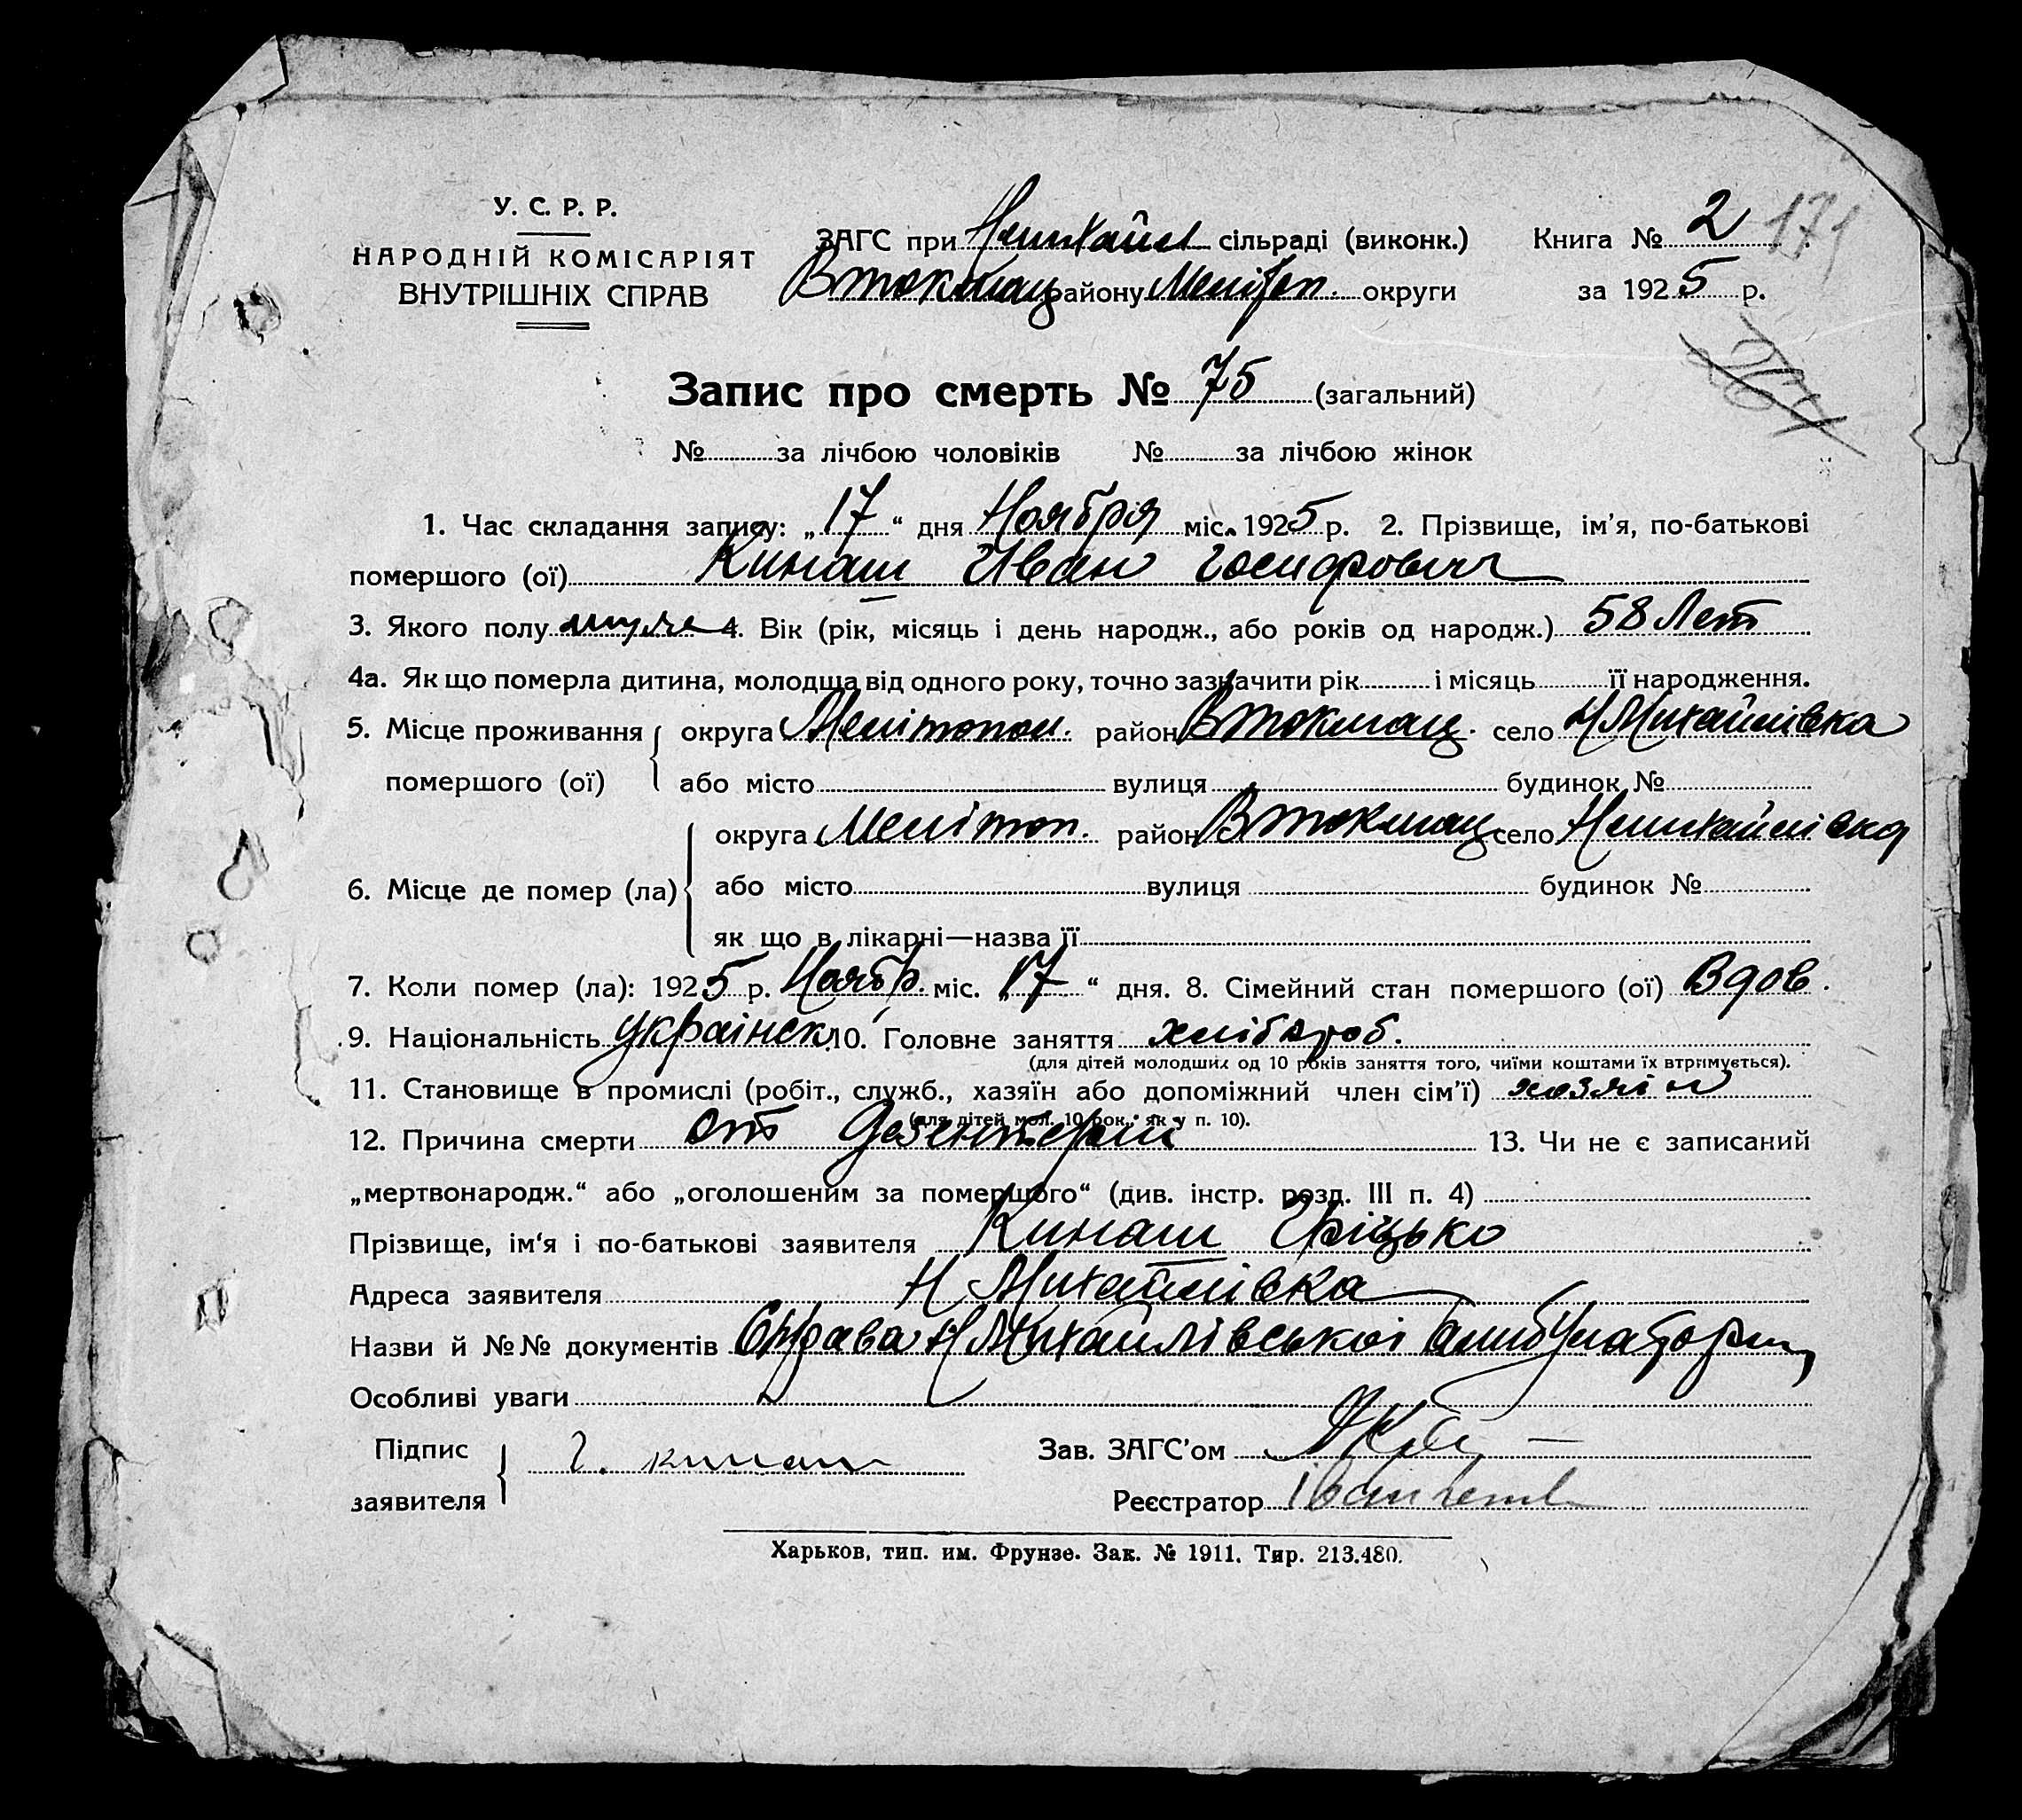 У. С. Р. Р.
НАРОДНІЙ КОМІСАРІЯТ
ВНУТРІШНІХ СПРАВ
ЗАГС при Нмихайл сільраді (виконк.) Книга № 2 171
Втокмац району Меліт. округи за 1925 р.
Запис про смерть № 75 (загальний)
№ за лічбою чоловіків № за лічбою жінок
1. Час складання запису: „17“ дня Ноября міс. 1925 р. 2. Прізвище, ім’я, по-батькові
помершого (ої) Кинаш Иван Іосифович
3. Якого полу муже 4. Вік (рік, місяць і день народж., або років од народж.) 58 Лет
4а. Як що померла дитина, молодща від одного року, точно зазначити рік і місяць її народження.
5. Місце проживання округа Мелітопол. район Втокмац. село Н Михайлівка
помершого (ої) або місто вулиця будинок №
округа Мелітоп. район Втокмац село Нмихайлівка
6. Місце де помер (ла) або місто вулиця будинок №
як що в лікарні—назва її
7. Коли помер (ла): 1925 р. Ноябр. міс. „17“ дня. 8. Сімейний стан помершого (ої) Вдов.
9. Національність українск. 10. Головне заняття хлібороб.
(для дітей молодших од 10 років заняття того, чиїми коштами їх втримується).
11. Становище в промислі (робіт., служб., хазяїн або допоміжний член сім’ї) хозяін
(для дітей мол. 10 рок., як у п. 10).
12. Причина смерти от Дезентерии 13. Чи не є записаний
„мертвонародж.“ або „оголошеним за помершого“ (див. інстр. розд. III п. 4)
Прізвище, ім‘я і по-батькові заявителя Кинаш Гріцько
Адреса заявителя Н Михайлівка
Назви й №№ документів Справа Н Михайлівської амбулатории
Особливі уваги
Підпис Г. кинаш Зав. ЗАГС’ом
заявителя Реєстратор
Харьков, тип. им. Фрунзе. Зак. № 1911. Тир. 213.480.